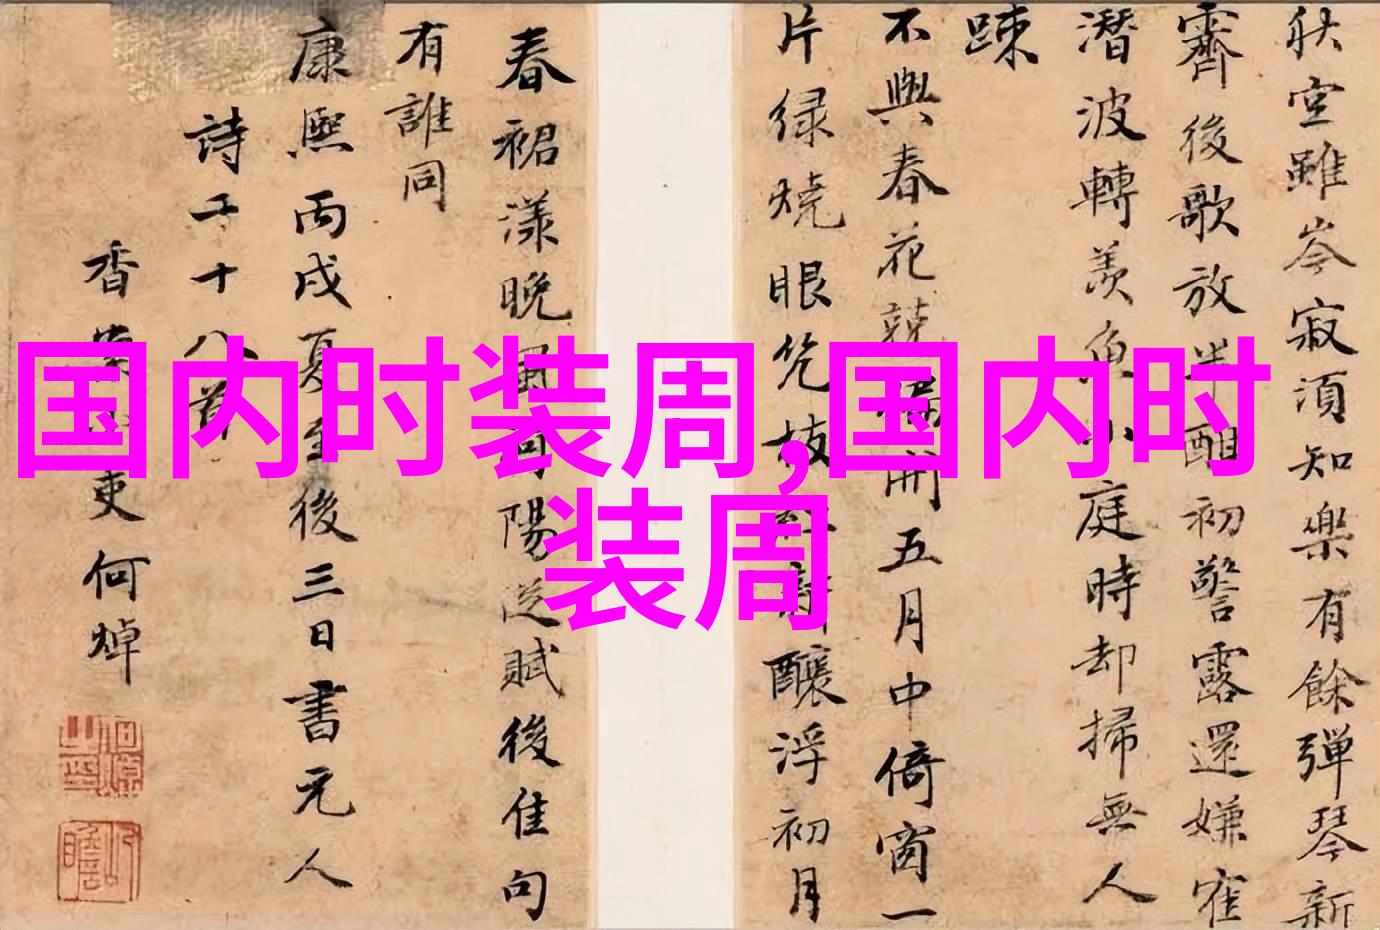 秋空雖岑寂須知樂有餘彈琴新
霽後歌放半酣初警露還嫌寉
潛波轉羨魚小庭時却掃無人
踈
不與春花競開五月中倚窗一
片绿燒眼凭枝紅新釀浮初月
春裙漾晚風河陽從賦後佳句
有誰同
康熙丙戌夏至後三日書元人
詩二十八首
香案小吏何焯
国内时装周,国内时
装周